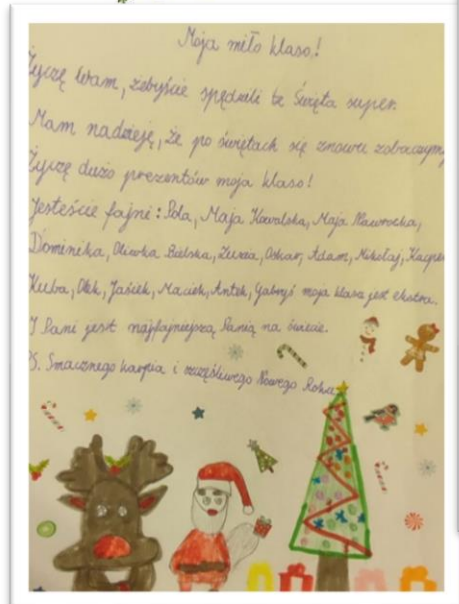 Moja miło klaso!
Życzę Wam, żebyście spędzili te Święta super.
Mam nadzieję, że po świętach się znowu zobaczymy
Życzę dużo prezentów moja klaso!
Jesteście fajni: Pola, Maja Kowalska, Maja Nawrocka,
Dominika, Oliwka Bielska, Zuzia, Oskar, Adam, Mikołaj, Kacper
Kuba, Olek, Jasiek, Maciek, Antek, Gabryś moja klasa jest ekstra.
I Pani jest najfajniejszą Panią na świecie.
Smacznego karpia i szczęśliwego Nowego Roku